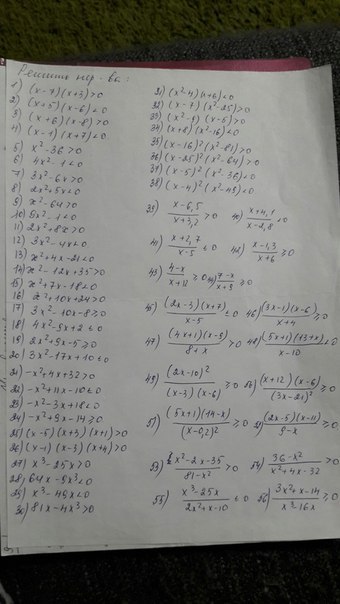 Решить нер-ва:
1) (x-7)(x+3)>0
2) (x+5)(x-6)<0
3) (x+6)(x-8)>0
4) (x-1)(x+7)<0
5) x²-36>0
6) 4x²-1<0
7) 3x²-6x>0
8) 2x²+5x<0
9) x²-64>0
10) 5x²-1<0
11) 2x²+8x>0
12) 3x²-4x<0
13) x²+4x-21<0
14) x²-12x+35>0
15) x²+7x-18<0
16) x²+10x+24>0
17) 3x²-10x-8>0
18) 4x²-9x+2≤0
19) 2x²+9x-5≥0
20) 3x²-17x+10≤0
21) -x²+4x+32>0
22) -x²+11x-10≤0
23) -x²-3x+18≤0
24) -x²+9x-14≥0
25) (x-5)(x+3)(x+1)>0
26) (x-1)(x-3)(x+4)>0
27) x³-25x>0
28) 64x-9x³<0
29) x³-49x<0
30) 81x-4x³>0
31) (x²-4)(x+6)<0
32) (x-7)(x²-25)>0
33) (x²-9)(x-5)>0
34) (x+8)(x²-16)<0
35) (x-16)²(x²-81)>0
36) (x-25)²(x²-64)>0
37) (x-5)²(x²-36)<0
38) (x-4)²(x²-49)<0
39) (x-6,5)/(x+3,2)>0 40) (x+4,1)/(x-2,8)<0
41) (x+2,7)/(x-5)≤0 42) (x-1,3)/(x+6)≥0
43) (4-x)/(x+12)≥0 44) (7-x)/(x+9)≥0
45) (2x-3)(x+7)/(x-5)≤0 46) (3x-1)(x-6)/(x+4)≥0
47) (4x+1)(x-9)/(8+x)≥0 48) (5x+1)(13+x)/(x-10)≤0
49) (2x-10)²/((x-3)(x-6))≥0 50) (x+12)(x-6)/(3x-21)²≥0
51) (5x+1)(14-x)/(x-0,2)²≥0 52) (2x-5)(x-11)/(9-x)≥0
53) (x²-2x-35)/(81-x²)>0 54) (36-x²)/(x²+4x-32)>0
55) (x³-25x)/(2x²+x-10)≤0 56) (3x²+x-14)/(x³-16x)≥0